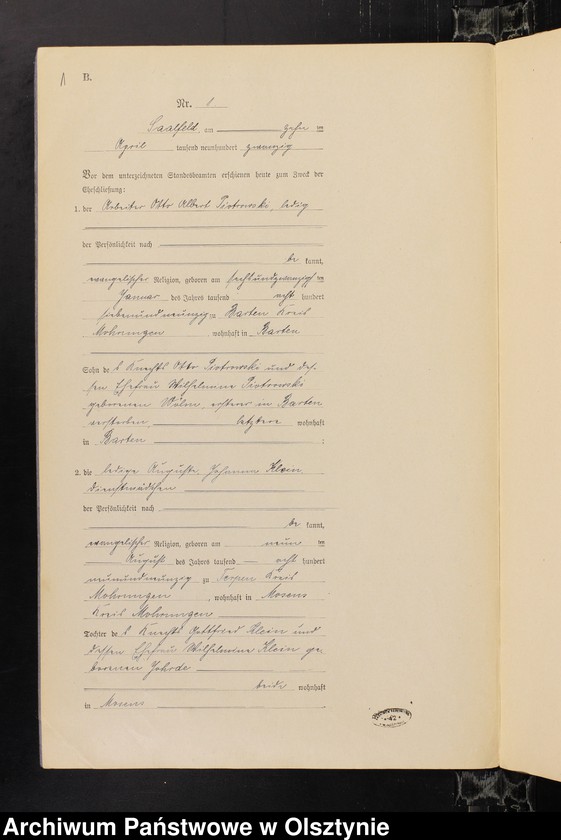 B.
Nr. 1
Saalfeld, am zehn ten
April tausend neunhundert zwanzig
Vor dem unterzeichneten Standesbeamten erschienen heute zum Zweck der
Eheschließung:
1. der Arbeiter Otto Albert Piotrowski, ledig
der Persönlichkeit nach
be kannt,
evangelischer Religion, geboren am sechsundzwanzigs ten
Januar des Jahres tausend acht hundert
siebenundneunzig zu Barten Kreis
Mohrungen, wohnhaft in Barten
Sohn des Knechts Otto Piotrowski und des-
sen Ehefrau Wilhelmine Piotrowski
geborenen, ersterer in Barten
verstorben letztere wohnhaft
in Barten;
2. die ledige Auguste Johanna Klein,
Dienstmädchen
der Persönlichkeit nach
be kannt,
evangelischer Religion, geboren am neun ten
August des Jahres tausend acht hundert
neunundneunzig zu Terpen Kreis
Mohrungen, wohnhaft in Mosens
Kreis Mohrungen
Tochter des Knechts Gottfried Klein und
dessen Ehefrau Wilhelmine Klein ge-
borenen
beide wohnhaft
in Mosens
42
Archiwum Państwowe w Olsztynie